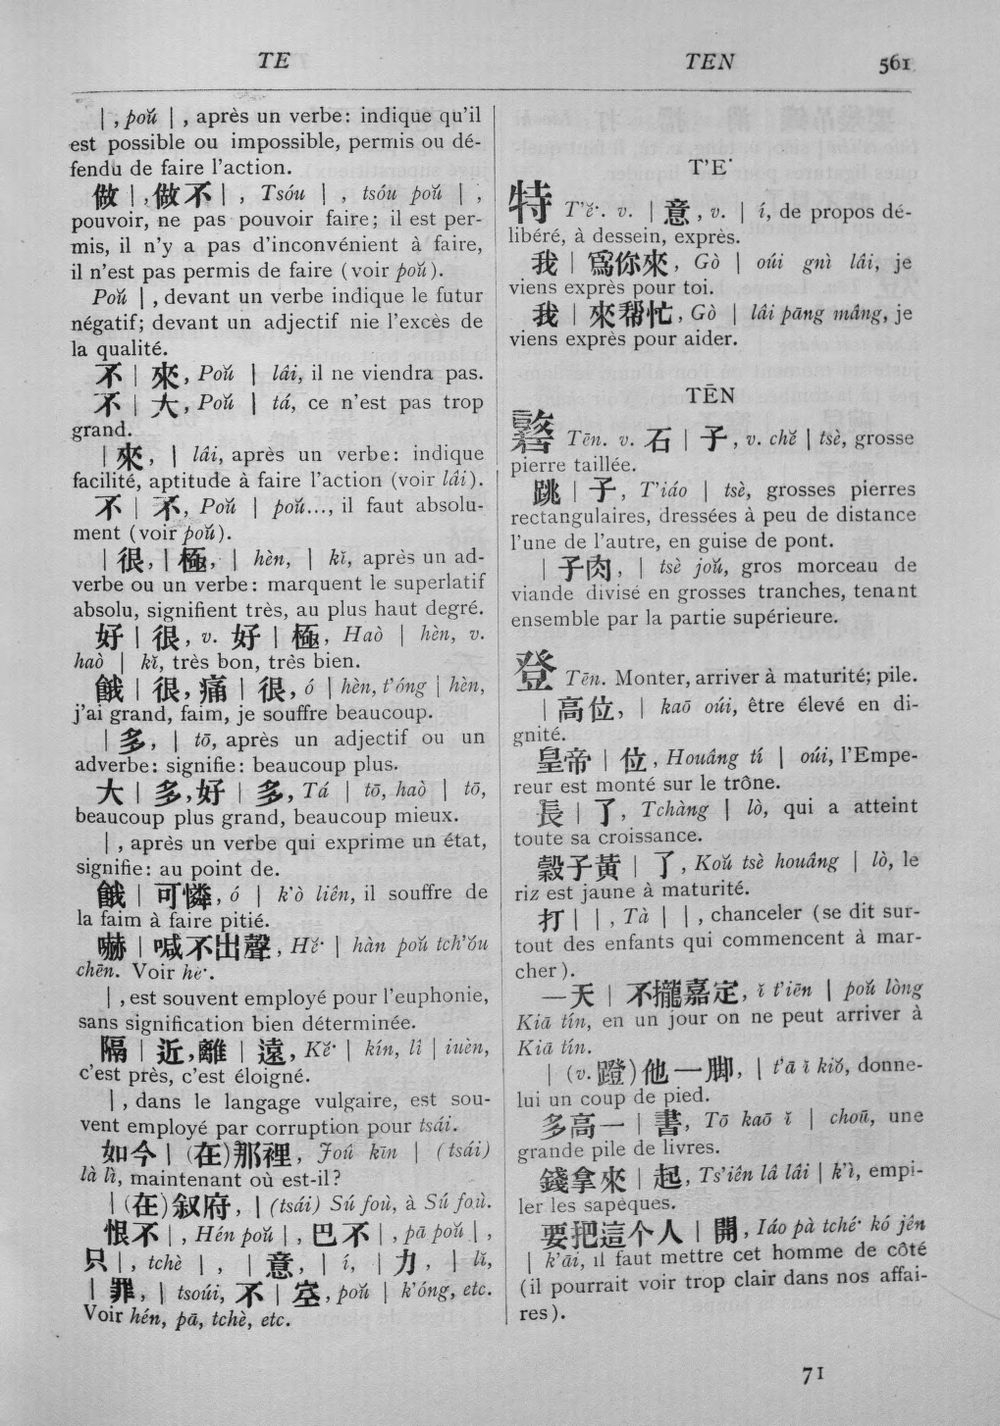 TE
TEN
561
| , poŭ | , après un verbe: indique qu'il
est possible ou impossible, permis ou dé-
fendu de faire l'action.
做 | , 做不 | , Tsóu | , tsóu poŭ | ,
pouvoir, ne pas pouvoir faire; il est per-
mis, il n'y a pas d'inconvénient à faire,
il n'est pas permis de faire (voir poŭ).
Poŭ | , devant un verbe indique le futur
négatif; devant un adjectif nie l'excès de
la qualité.
不 | 來, Poŭ | lâi, il ne viendra pas.
不 | 大, Poŭ | tá, ce n'est pas trop
grand.
| 來, | lâi, après un verbe: indique
facilité, aptitude à faire l'action (voir lâi).
不 | 不, Poŭ | poŭ..., il faut absolu-
ment (voir poŭ).
| 很, | 極, | hèn, | kĭ, après un ad-
verbe ou un verbe: marquent le superlatif
absolu, signifient très, au plus haut degré.
好 | 很, v. 好 | 極, Haò | hèn, v.
haò | kĭ, très bon, très bien.
餓 | 很, 痛 | 很, ó | hèn, t'óng | hèn,
j'ai grand, faim, je souffre beaucoup.
| 多, | tō, après un adjectif ou un
adverbe: signifie: beaucoup plus.
大 | 多, 好 | 多, Tá | tō, haò | tō,
beaucoup plus grand, beaucoup mieux.
| , après un verbe qui exprime un état,
signifie: au point de.
餓 | 可憐, ó | k'ò liên, il souffre de
la faim à faire pitié.
嚇 | 喊不出聲, Hĕ· | hàn poŭ tch'ŏu
chēn. Voir hĕ·.
| , est souvent employé pour l'euphonie,
sans signification bien déterminée.
隔 | 近, 離 | 遠, Kĕ· | kín, lî | iuèn,
c'est près, c'est éloigné.
| , dans le langage vulgaire, est sou-
vent employé par corruption pour tsái.
如今 | (在) 那裡, Joû kīn | (tsái)
là lì, maintenant où est-il?
| (在) 叙府, | (tsái) Sú foù, à Sú foù.
恨不 | , Hén poŭ | , 巴不 | , pā poŭ | ,
只 | , tchè | , | 意, | í, | 力, | lĭ,
| 罪, | tsoúi, 不 | 空, poŭ | k'óng, etc.
Voir hén, pā, tchè, etc.
T'E·
特 T'ĕ·. v. | 意, v. | í, de propos dé-
libéré, à dessein, exprès.
我 | 爲你來, Gò | oúi gnì lâi, je
viens exprès pour toi.
我 | 來幫忙, Gò | lâi pāng mâng, je
viens exprès pour aider.
TĒN
Tēn. v. 石 | 子, v. chĕ | tsè, grosse
pierre taillée.
跳 | 子, T'iáo | tsè, grosses pierres
rectangulaires, dressées à peu de distance
l'une de l'autre, en guise de pont.
| 子肉, | tsè joŭ, gros morceau de
viande divisé en grosses tranches, tenant
ensemble par la partie supérieure.
登 Tēn. Monter, arriver à maturité; pile.
| 高位, | kaō oúi, être élevé en di-
gnité.
皇帝 | 位, Houâng tí | oúi, l'Empe-
reur est monté sur le trône.
長 | 了, Tchàng | lò, qui a atteint
toute sa croissance.
穀子黃 | 了, Koŭ tsè houâng | lò, le
riz est jaune à maturité.
打 | | , Tà | | , chanceler (se dit sur-
tout des enfants qui commencent à mar-
cher).
一天 | 不攏嘉定, ĭ t'iēn | poŭ lòng
Kiā tín, en un jour on ne peut arriver à
Kiā tín.
| (v. 蹬) 他一脚, | t'ā ĭ kiŏ, donne-
lui un coup de pied.
多高一 | 書, Tō kaō ĭ | choū, une
grande pile de livres.
錢拿來 | 起, Ts'iên lâ lâi | k'ì, empi-
ler les sapèques.
要把這个人 | 開, Iáo pà tché· kó jên
| k'āi, il faut mettre cet homme de côté
(il pourrait voir trop clair dans nos affai-
res).
71